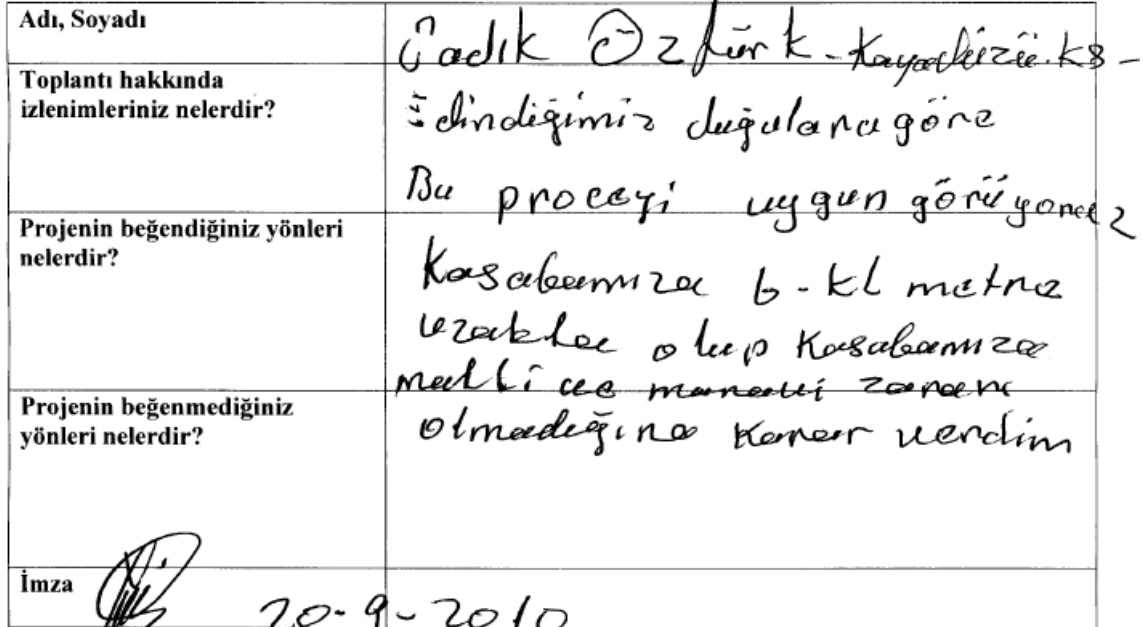 Adı, Soyadı
Öztürk - Kayadüzü. KS -
Toplantı hakkında
izlenimleriniz nelerdir?
Edindiğimiz duğulara göre
Bu proceyi uygun görüyoruz
Projenin beğendiğiniz yönleri
nelerdir?
Kasabamıza 6 - kl metre
uzakta olup Kasabamıza
matti ve manavi zararı
Projenin beğenmediğiniz
yönleri nelerdir?
olmadığına karar verdim
İmza
20-9-2010